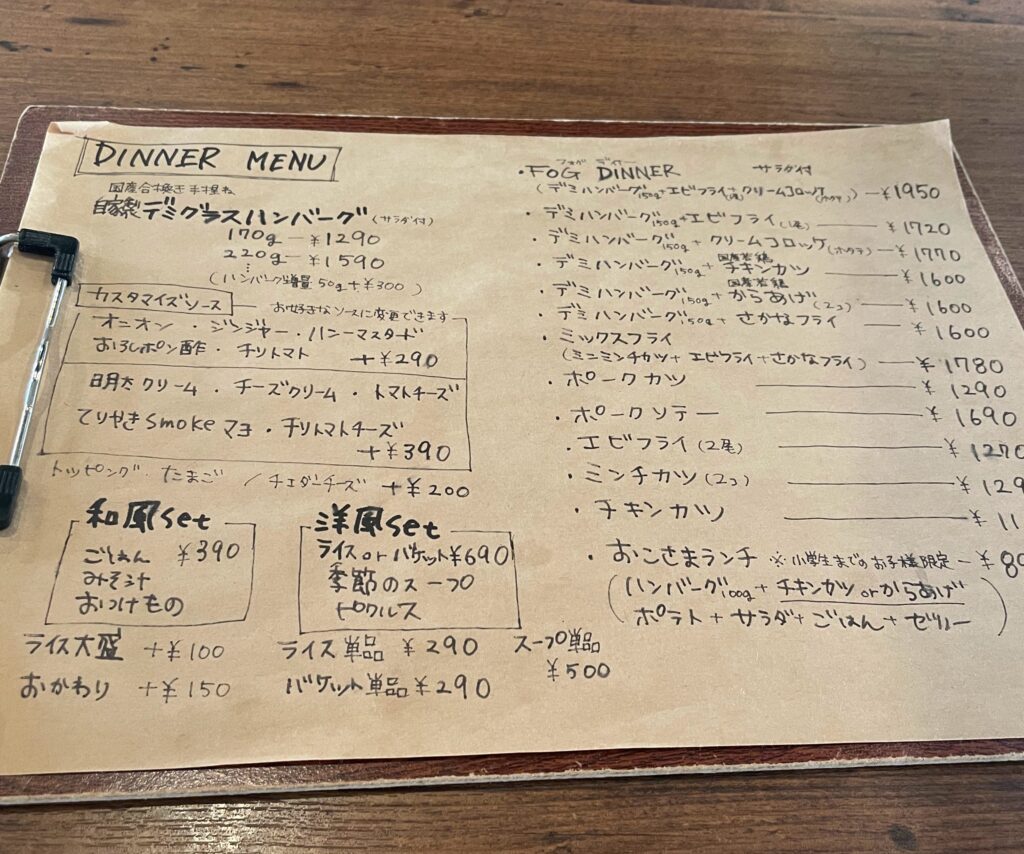 DINNER MENU
国産合挽き手捏ね
自家製デミグラスハンバーグ(サラダ付)
170g ー ¥1290
220g ー ¥1590
(ハンバーグ増量 50g +¥300)
カスタマイズソース ー お好きなソースに変更できます
オニオン・ジンジャー・ハニーマスタード
おろしポン酢・チリトマト +¥290
明太クリーム・チーズクリーム・トマトチーズ
てりやきSmokeマヨ・チリトマトチーズ
+¥390
トッピング・たまご / チェダーチーズ +¥200
和風set
ごはん ¥390
みそ汁
おつけもの
洋風set
ライス or バケット ¥690
季節のスープ
ピクルス
ライス大盛 +¥100
おかわり +¥150
ライス単品 ¥290
バケット単品 ¥290
スープ単品
¥500
フォグ ディナー
・FOG DINNER サラダ付
(デミハンバーグ150g+エビフライ(1尾)+クリームコロッケ) ー ¥1950
・デミハンバーグ150g+エビフライ(1尾) ー ¥1720
・デミハンバーグ150g+クリームコロッケ(ホタテ) ー ¥1770
国産若鶏
・デミハンバーグ150g+チキンカツ ー ¥1600
国産若鶏
・デミハンバーグ150g+からあげ(2コ) ー ¥1600
・デミハンバーグ150g+さかなフライ ー ¥1600
・ミックスフライ
(ミニミンチカツ+エビフライ+さかなフライ) ー ¥1780
・ポークカツ ー ¥1290
・ポークソテー ー ¥1690
・エビフライ(2尾) ー ¥1270
・ミンチカツ(2コ) ー ¥129
・チキンカツ ー ¥11
・おこさまランチ ※小学生までのお子様限定 ー ¥89
(ハンバーグ100g+チキンカツorからあげ
ポテト+サラダ+ごはん+ゼリー)